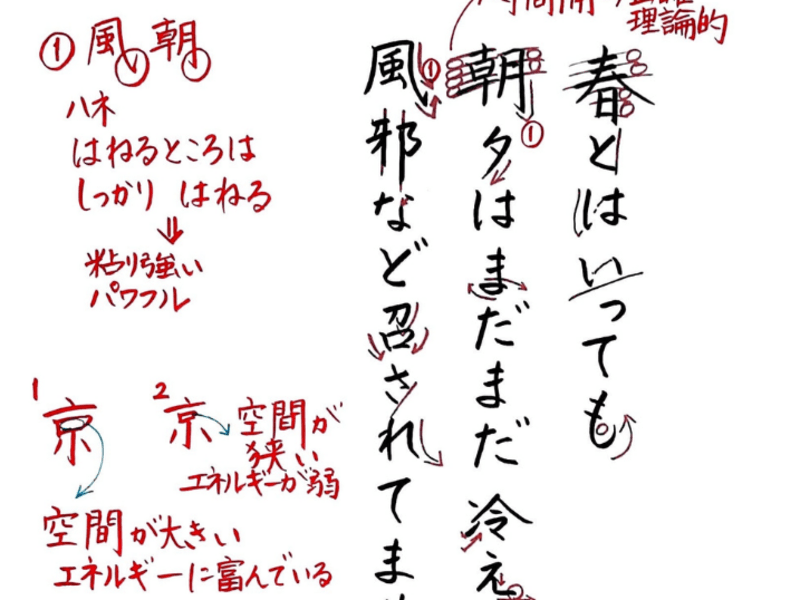 理論的
春とはいっても
朝夕はまだまだ冷え
風邪など召されてま
① 風 朝
ハネ
はねるところは
しっかり はねる
粘り強い
パワフル
1 京
空間が大きい
エネルギーに富んでいる
2 京
空間が
狭い
エネルギーが弱
①
①